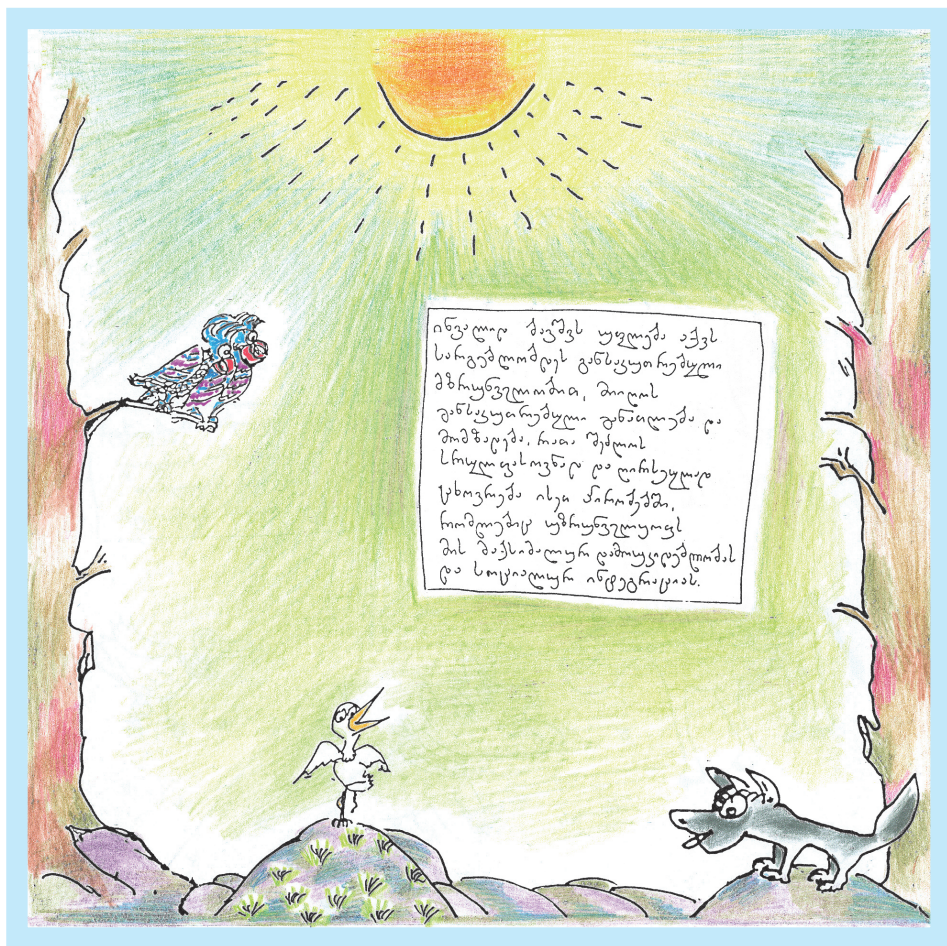 ინვალიდ ბავშვს უფლება აქვს
სარგებლობდეს განსაკუთრებული
მზრუნველობით, მიიღოს
განსაკუთრებული განათლება და
მომზადება, რათა შეძლოს
სრულფასოვნად და ღირსეულად
ცხოვრება ისეთ პირობებში,
რომლებიც უზრუნველყოფს
მის მაქსიმალურ დამოუკიდებლობას
და სოციალურ ინტეგრაციას.